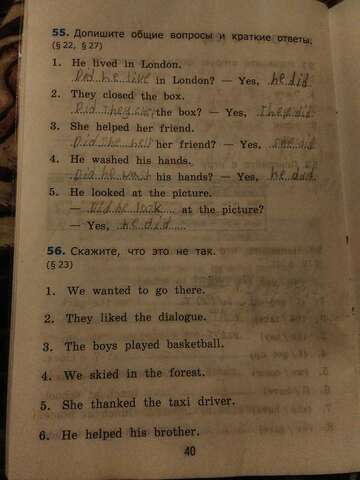 55. Допишите общие вопросы и краткие ответы.
(§ 22, § 27)
1. He lived in London.
Did he live in London? — Yes, he did
2. They closed the box.
Did They close the box? — Yes, They did
3. She helped her friend.
Did she help her friend? — Yes, she did
4. He washed his hands.
Did he wash his hands? — Yes, he did
5. He looked at the picture.
— Did he look at the picture?
— Yes, he did
56. Скажите, что это не так.
(§ 23)
1. We wanted to go there.
2. They liked the dialogue.
3. The boys played basketball.
4. We skied in the forest.
5. She thanked the taxi driver.
6. He helped his brother.
40